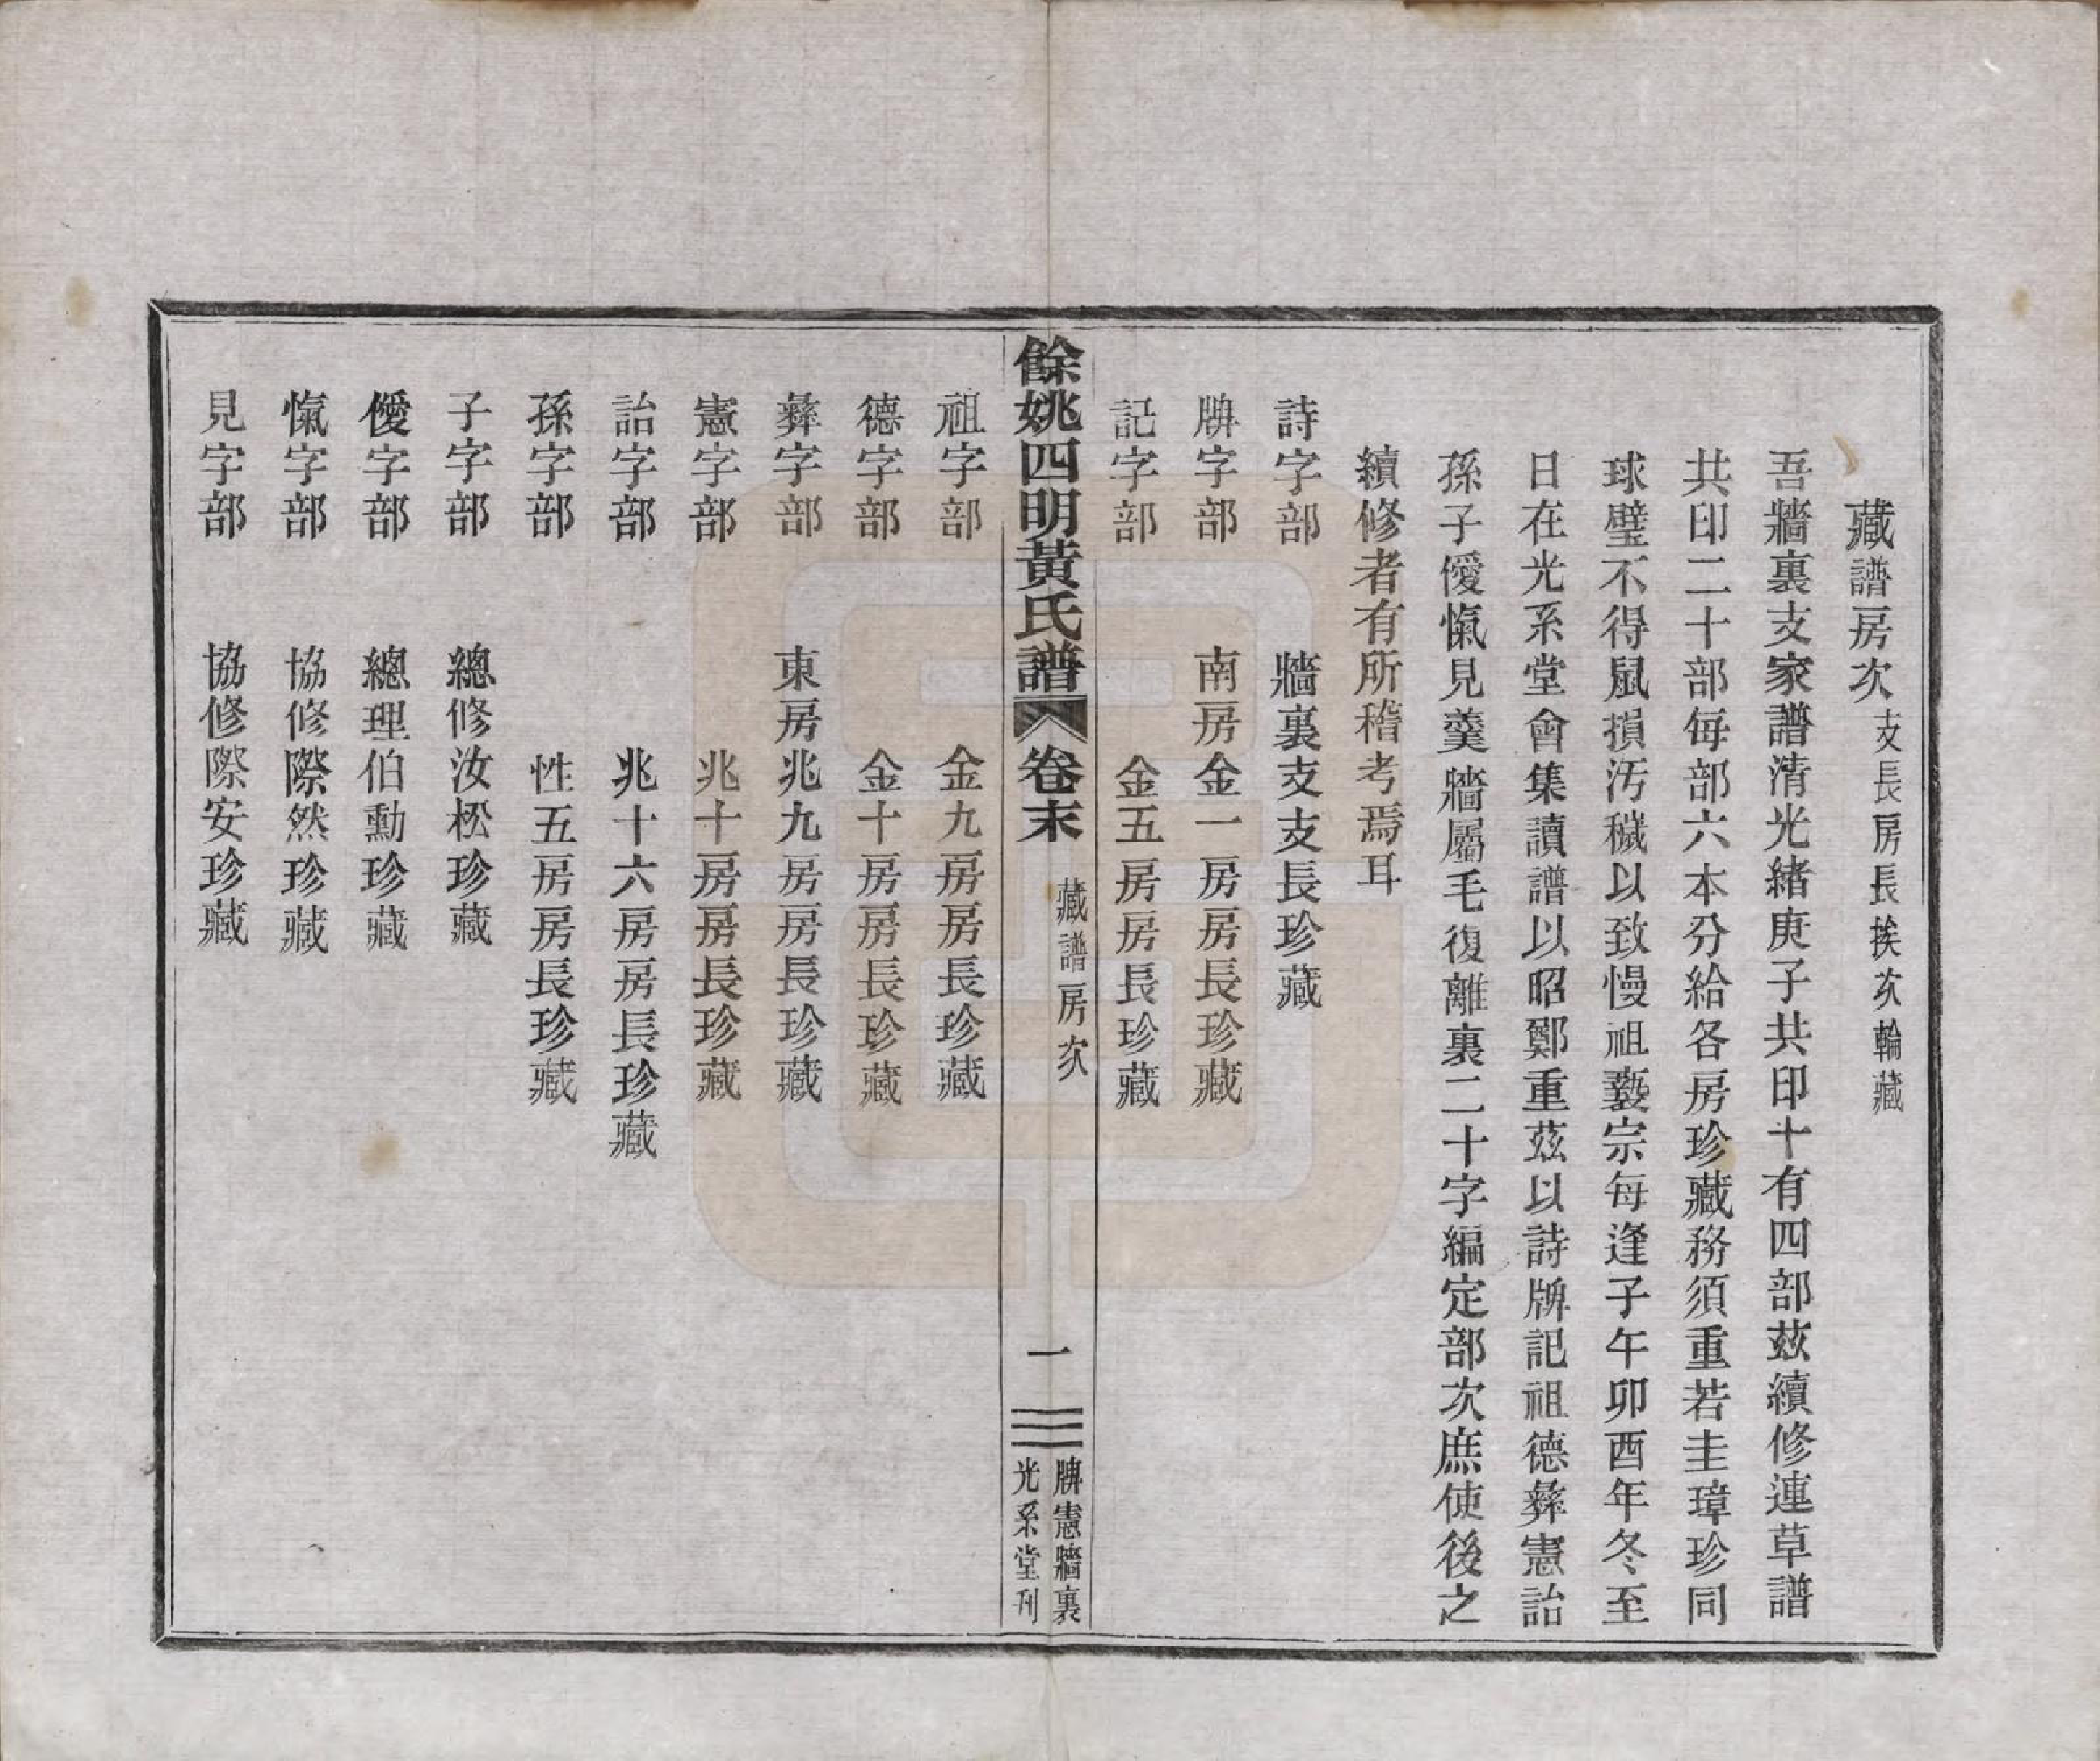 藏譜房次支長房長挨次輪藏
吾牆裏支家譜清光緒庚子共印十有四部茲續修連草譜
共印二十部每部六本分給各房珍藏務須重若圭璋珍同
球璧不得鼠損汚穢以致慢祖褻宗每逢子午卯酉年冬至
日在光系堂會集讀譜以昭鄭重茲以詩牌記祖德彝憲詒
孫子僾愾見羹牆屬毛復離裏二十字編定部次庶使後之
續修者有所稽考焉耳
詩字部 牆裏支支長珍藏
牌字部 南房金一房房長珍藏
記字部 金五房房長珍藏
餘姚四明黃氏譜 卷末 藏譜房次 一 牌憲牆裏 光系堂刊
祖字部 金九房房長珍藏
德字部 金十房房長珍藏
彝字部 東房兆九房房長珍藏
憲字部 兆十房房長珍藏
詒字部 兆十六房房長珍藏
孫字部 性五房房長珍藏
子字部 總修汝松珍藏
僾字部 總理伯勳珍藏
愾字部 協修際然珍藏
見字部 協修際安珍藏